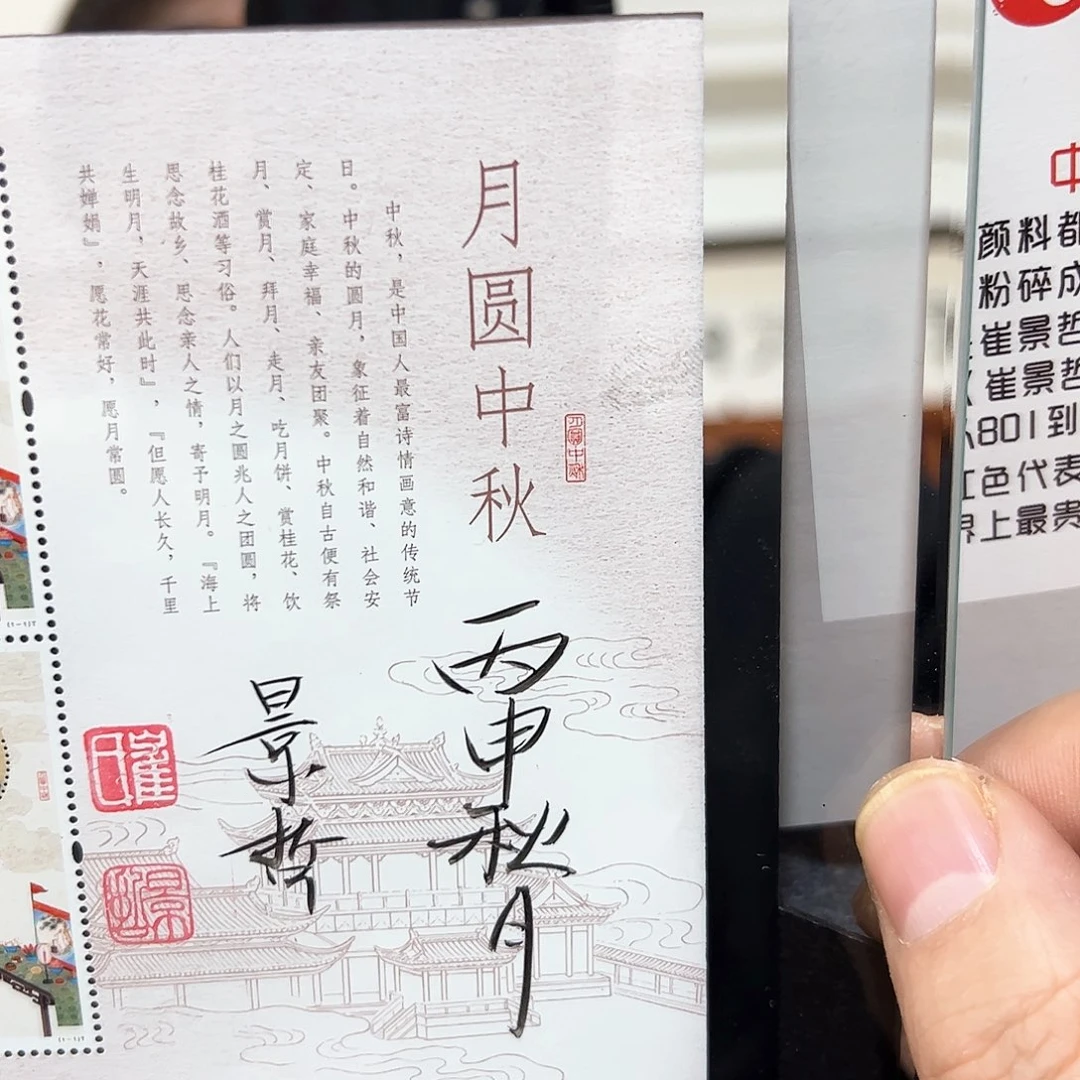 月圆中秋
月圆中秋
中秋，是中国人最富诗情画意的传统节
日。中秋的圆月，象征着自然和谐、社会安
定、家庭幸福、亲友团聚。中秋自古便有祭
月、赏月、拜月、走月、吃月饼、赏桂花、饮
桂花酒等习俗。人们以月之圆兆人之团圆，将
思念故乡、思念亲人之情，寄予明月。『海上
生明月，天涯共此时』，『但愿人长久，千里
共婵娟』，愿花常好，愿月常圆。
丙申秋月
景哲
中
颜料都
粉碎成
崔景哲
崔景哲
801到
色代表
界上最贵